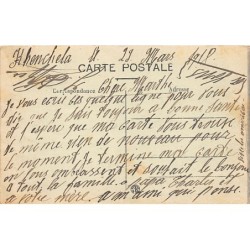 Khenchela le 29 Mars 1918
CARTE POSTALE
Correspondance Adresse
Chère Marthe
Je vous écris ces quelque ligne pour vous
dire que Je suis toujours a bonne santé
et J'espère que ma carte vous trouve
de même rien de nouveau pour
le moment, Je termine ma carte
en vous embrassant et souhait le bonjour
a tout la famille a Charles et
a votre mère ami qui pense